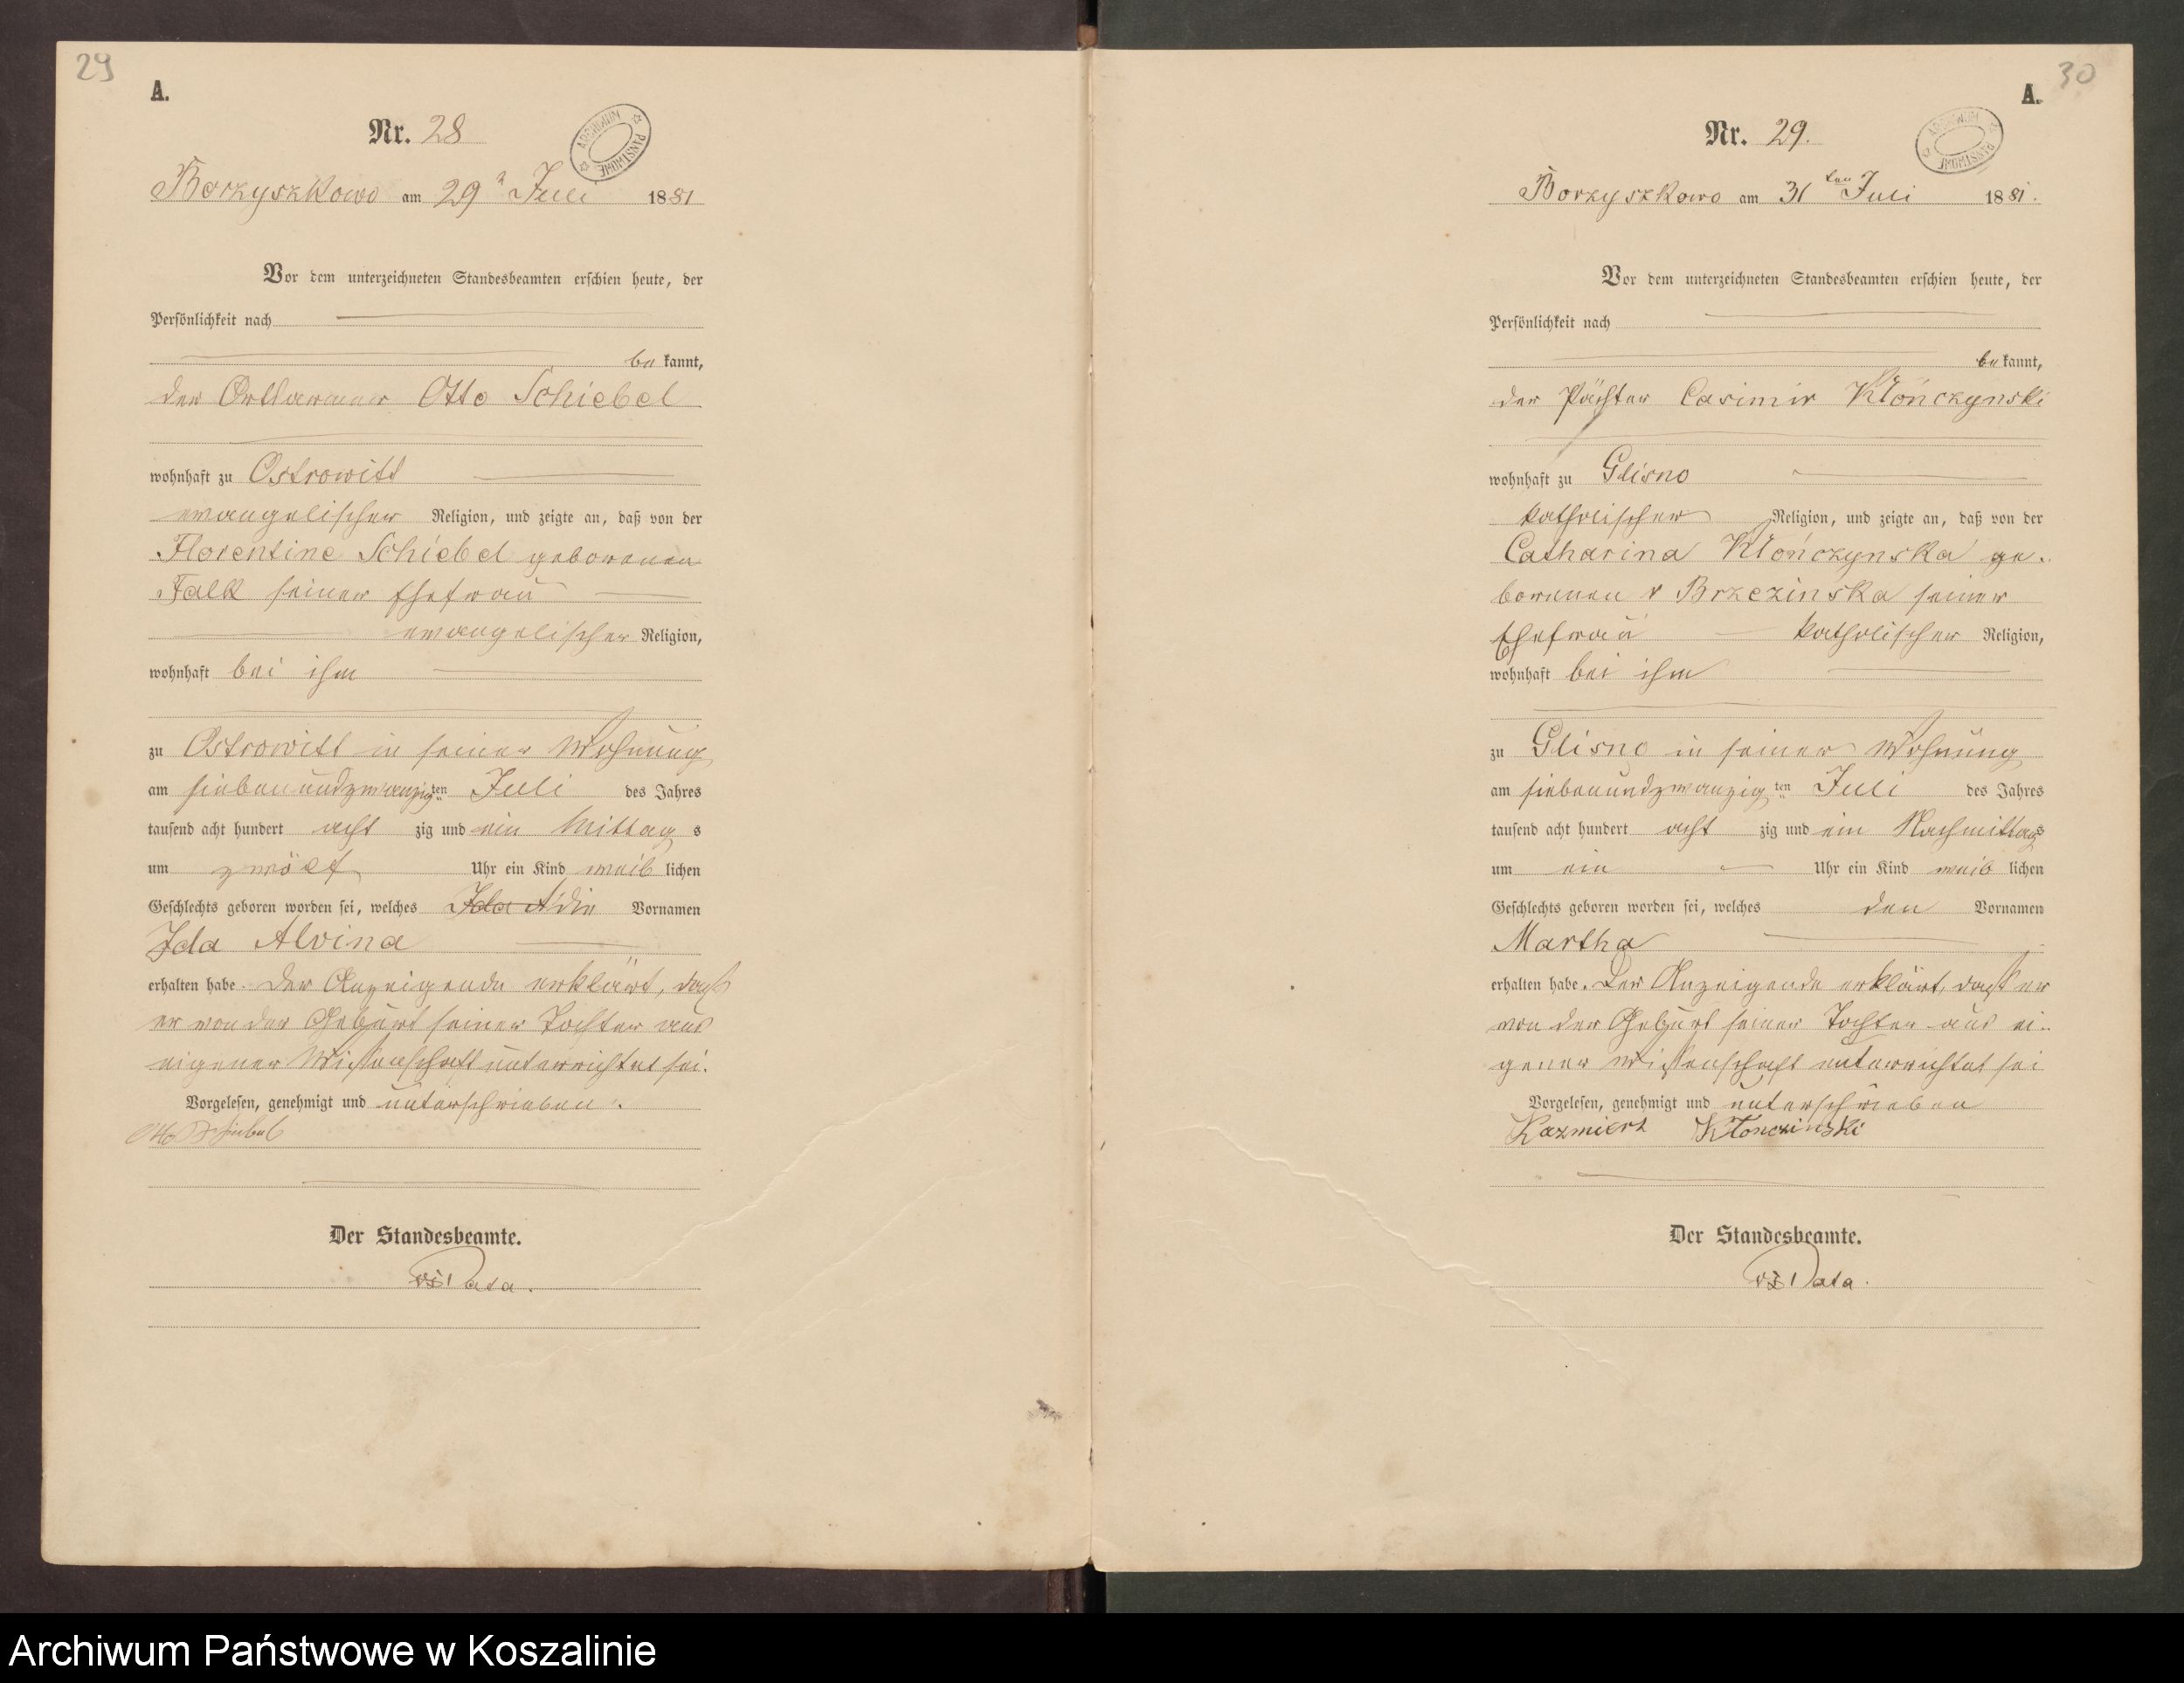 29
A.
Nr. 28
ARCHIWUM PAŃSTWOWE
Borzyszkowo am 29 Juli 1881
Vor dem unterzeichneten Standesbeamten erschien heute, der
Persönlichkeit nach
be kannt,
der Ortsarmer Otto Schiebel
wohnhaft zu Ostrowitt
evangelischer Religion, und zeigte an, daß von der
Florentine Schiebel geborenen
Falk seiner Ehefrau
evangelischer Religion,
wohnhaft bei ihm
zu Ostrowitt in seiner Wohnung
am siebenundzwanzigten Juli des Jahres
tausend acht hundert acht zig und ein Mittag s
um zwölf Uhr ein Kind weib lichen
Geschlechts geboren worden sei, welches Ida A die Vornamen
Ida Alvina
erhalten habe. Der Anzeigende erklärt, daß
er von der Geburt seiner Tochter aus
eigener Wissenschaft unterrichtet sei.
Vorgelesen, genehmigt und unterschrieben.
Otto Schiebel
Der Standesbeamte.
30
A.
Nr. 29.
ARCHIWUM PAŃSTWOWE
Borzyszkowo am 31 ten Juli 1881.
Vor dem unterzeichneten Standesbeamten erschien heute, der
Persönlichkeit nach
be kannt,
der Pächter Casimir Kłónczynski
wohnhaft zu Glisno
katholischer Religion, und zeigte an, daß von der
Catharina Kłończynska ge-
borenen v Brzezinska seiner
Ehefrau katholischer Religion,
wohnhaft bei ihm
zu Glisno in seiner Wohnung
am siebenundzwanzig ten Juli des Jahres
tausend acht hundert acht zig und ein Nachmittags
um ein Uhr ein Kind weib lichen
Geschlechts geboren worden sei, welches den Vornamen
Martha
erhalten habe. Der Anzeigende erklärt, daß er
von der Geburt seiner Tochter aus ei-
gener Wissenschaft unterrichtet sei
Vorgelesen, genehmigt und unterschrieben
Kazmierz Kłonczinski
Der Standesbeamte.
Archiwum Państwowe w Koszalinie